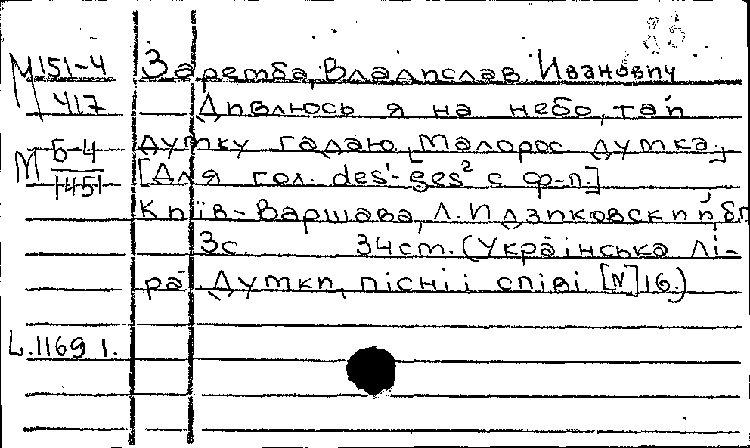 85
М 151-4 Заремба, Владислав Иванович
417 Дивлюсь я на небо, тай
М Б-4 думку гадаю. [Малорос. думка.]
1451 [Для гол. des¹-ges² с ф-п.]
Київ-Варшава, Л. Идзиковский, б.г.
3с 34 ст. (Українська лі-
ра. Думки, пісні і співі [N] 16.)
L. 1169 1.